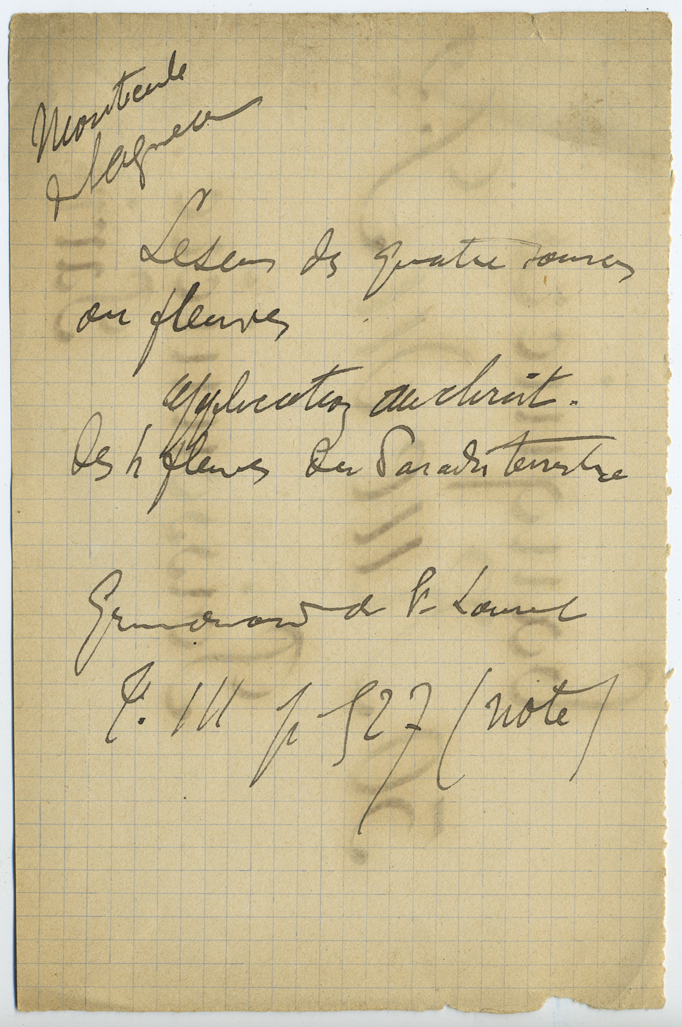 Monticule
d'Agneau
Le sens des quatre sources
ou fleuves
application au Christ.
des 4 fleuves du Paradis terrestre
Grimouard de St Laurent
T. III p 527 (note)